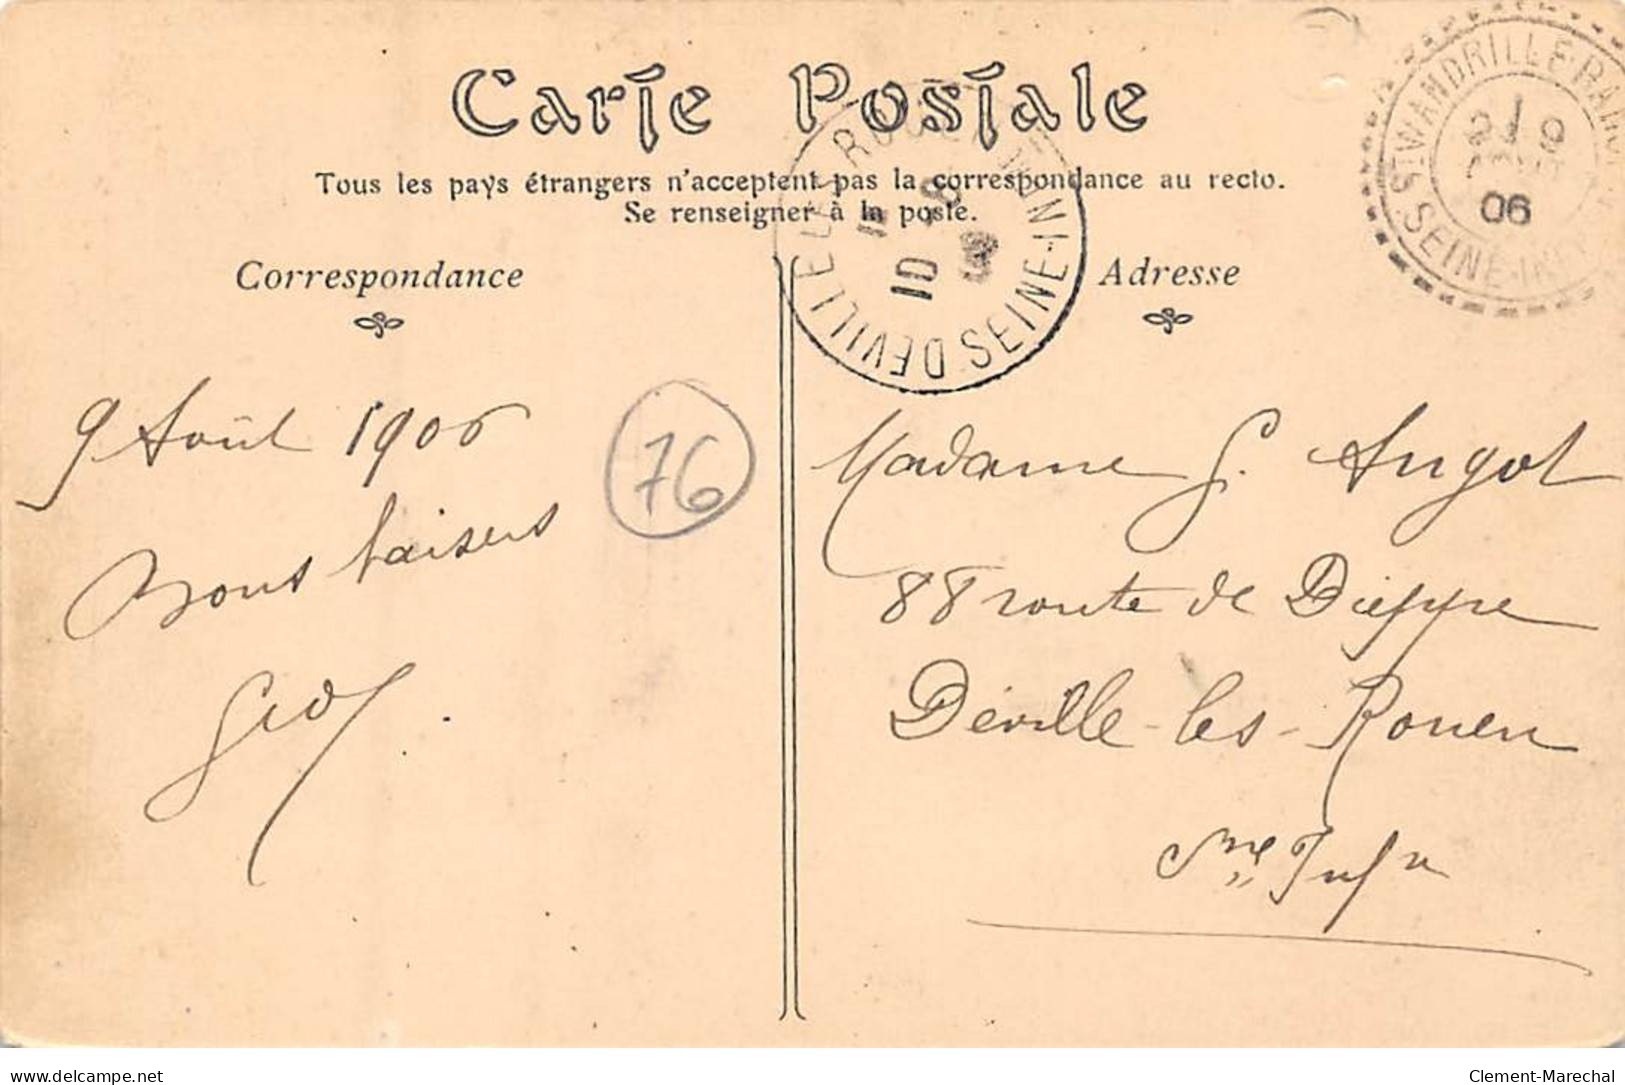 Carte Postale
Tous les pays étrangers n'acceptent pas la correspondance au recto.
Se renseigner à la poste.
Correspondance
Adresse
ST WANDRILLE RAN
SEINE-INF
9
06
DEVILLE
SEINE-INF
10
9 Août 1906
76
Bons baisers
Madame G. Angot
88 route de Dieppe
Déville-les-Rouen
Sne Infre
delcampe.net
Clement-Marechal